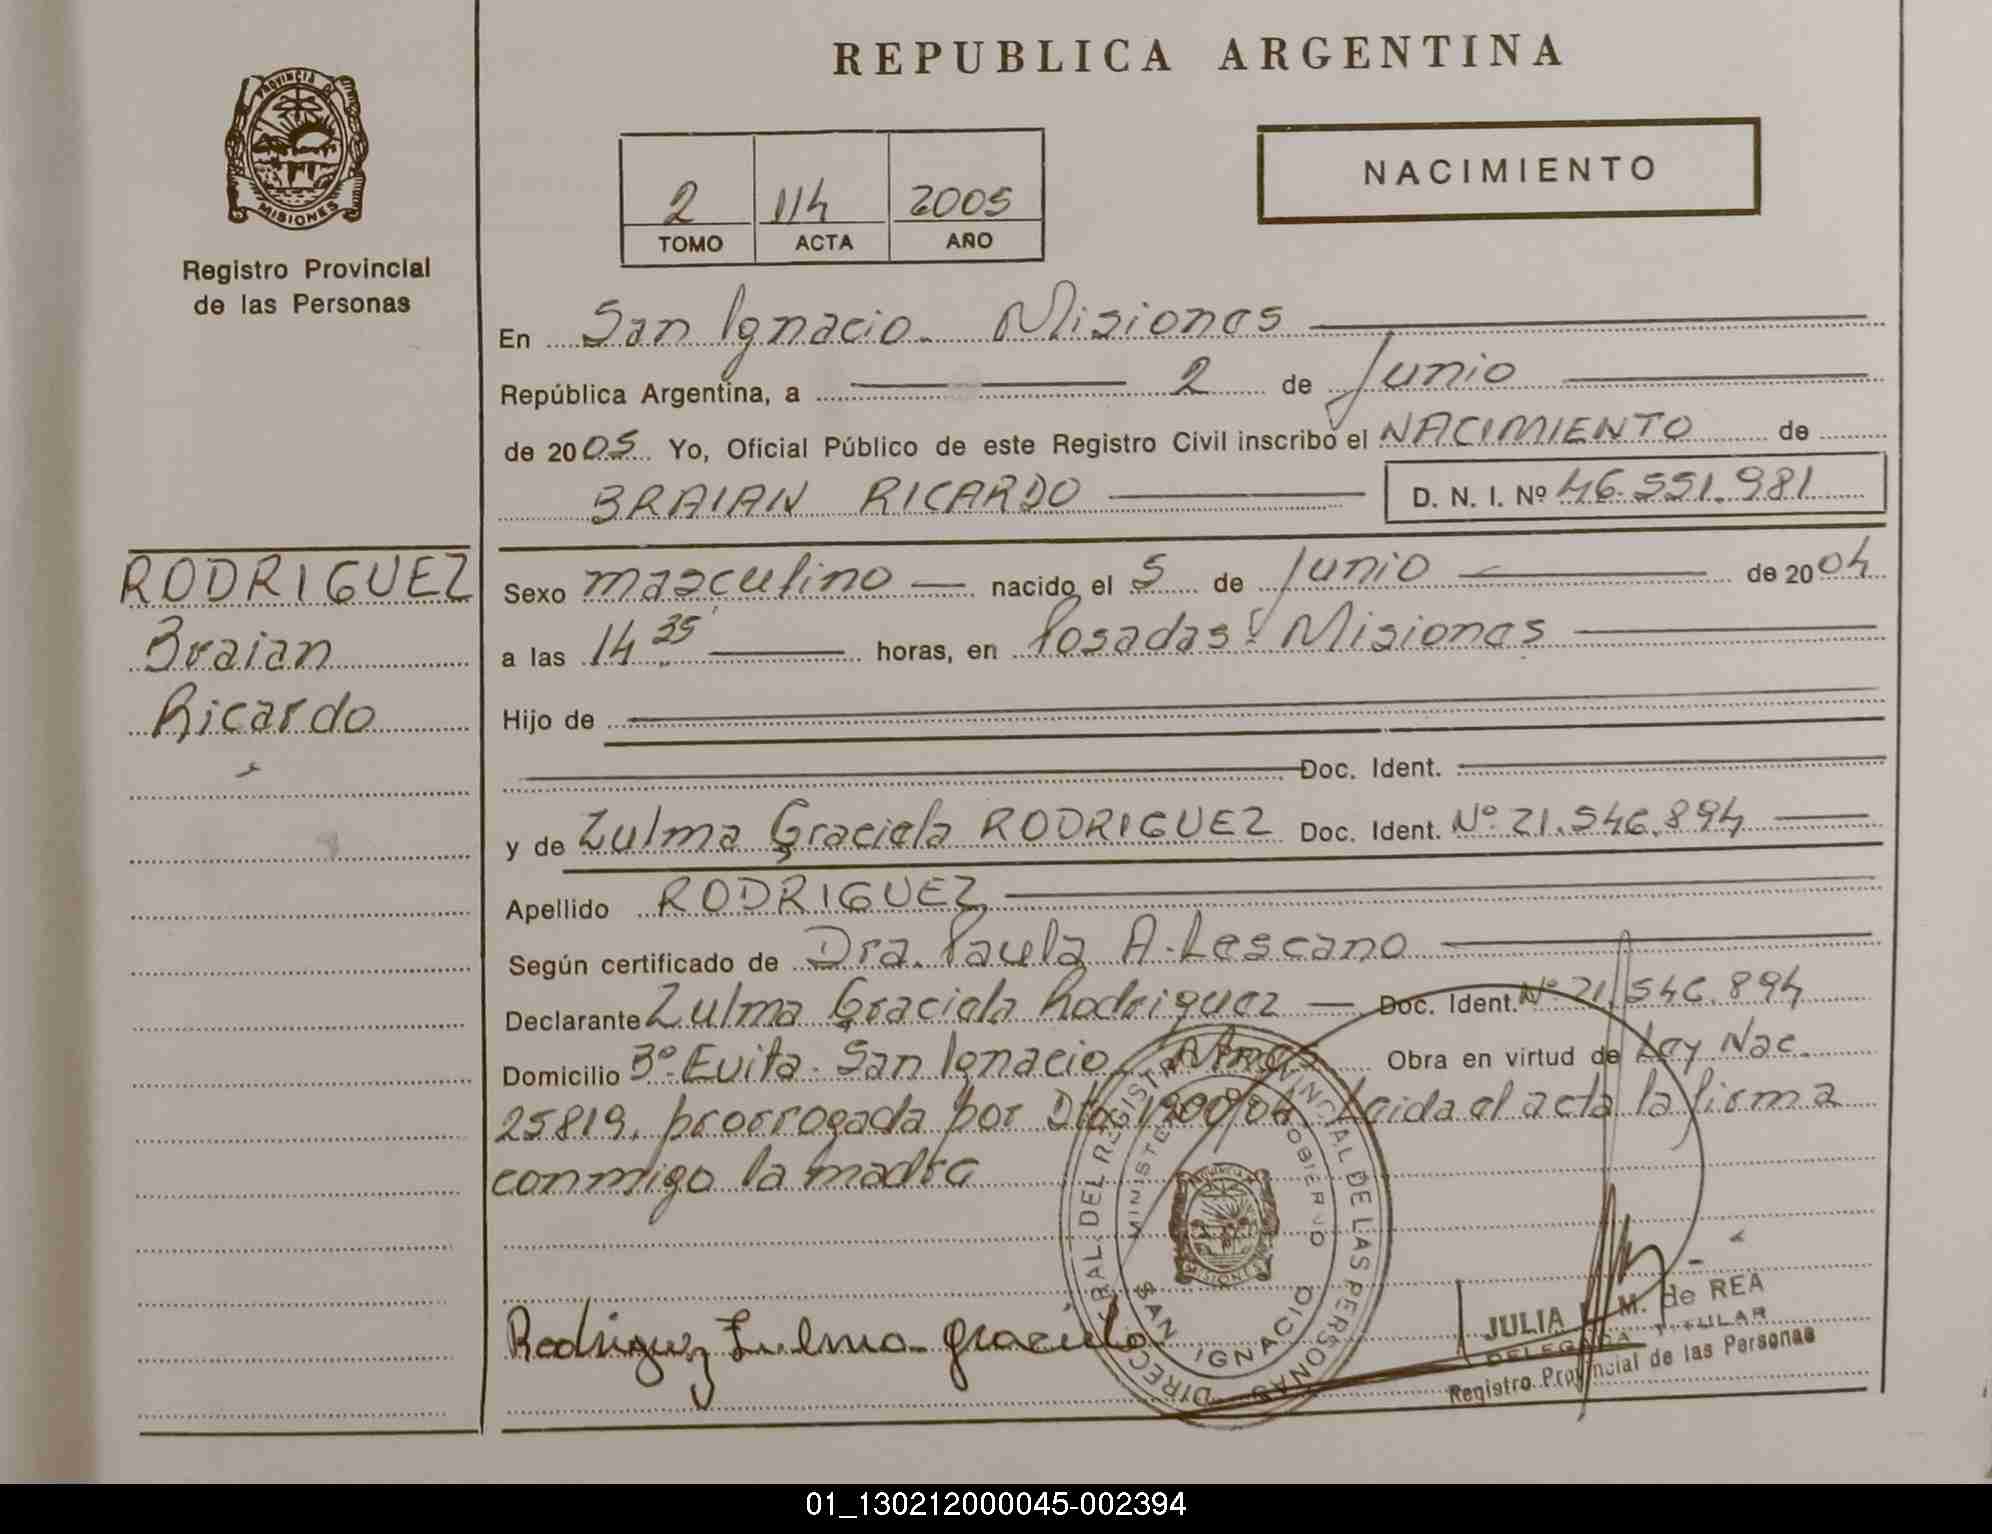 REPUBLICA ARGENTINA
PROVINCIA DE
MISIONES
Registro Provincial
de las Personas
NACIMIENTO
2 114 2005
TOMO ACTA AÑO
En San Ignacio. Misiones
República Argentina, a 2 de Junio
de 2005 Yo, Oficial Público de este Registro Civil inscribo el NACIMIENTO de
BRAIAN RICARDO D. N. I. Nº 46.551.981
RODRIGUEZ
Braian
Ricardo
Sexo masculino nacido el 5 de Junio de 2004
a las 14 35 horas, en Posadas Misiones
Hijo de
Doc. Ident.
y de Zulma Graciela RODRIGUEZ Doc. Ident. Nº 21.546.894
Apellido RODRIGUEZ
Según certificado de Dra. Paula A. Lescano
Declarante Zulma Graciela Rodriguez Doc. Ident. Nº 21.546.894
Domicilio Bº Evita. San Ignacio Mnes Obra en virtud de Ley Nac.
25819. prorrogada por Dto. 1200/04 Leida el acta la firma
conmigo la madre
DIRECC GRAL. DEL REGISTRO PROVINCIAL DE LAS PERSONAS
MINISTERIO GOBIERNO
MISIONES
SAN IGNACIO
Rodriguez Zulma Graciela
JULIA M. de REA
DELEGADA TITULAR
Registro Provincial de las Personas
01_130212000045-002394